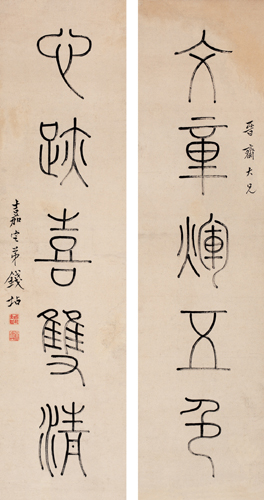 文章輝五色
晉齋大兄
心跡喜雙清
嘉定弟錢坫